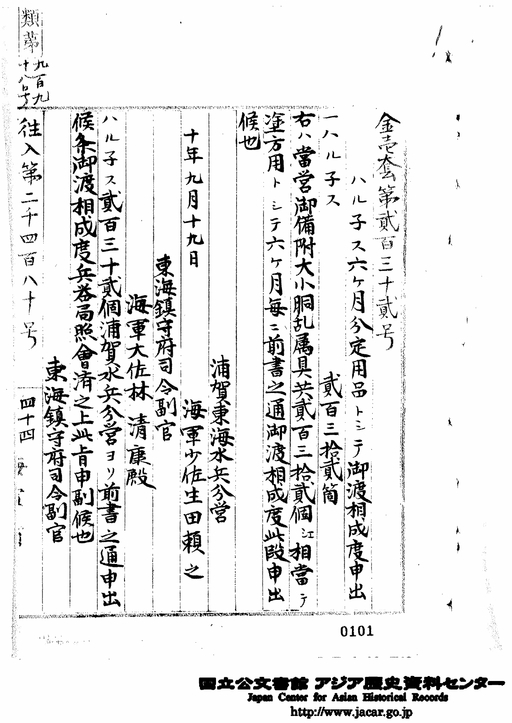 類第
九百九
十八号
金壱套第貳百三十貳号
ハル子ス六ケ月分定用品トシテ御渡相成度申出
一ハル子ス 貳百三拾貳箇
右ハ當営御備附大小胴乱属具共貳百三拾貳個江相當テ
塗方用トシテ六ケ月毎ニ前書之通御渡相成度此段申出
候也
浦賀東海水兵分営
十年九月十九日 海軍少佐生田頼之
東海鎮守府司令副官
海軍大佐林清康殿
ハル子ス貳百三十貳個浦賀水兵分営ヨリ前書之通申出
候条御渡相成度兵器局照會済之上此旨申副候也
東海鎮守府司令副官
往入第二千四百八十号
四十四
0101
国立公文書館 アジア歴史資料センター
Japan Center for Asian Historical Records
http://www.jacar.go.jp